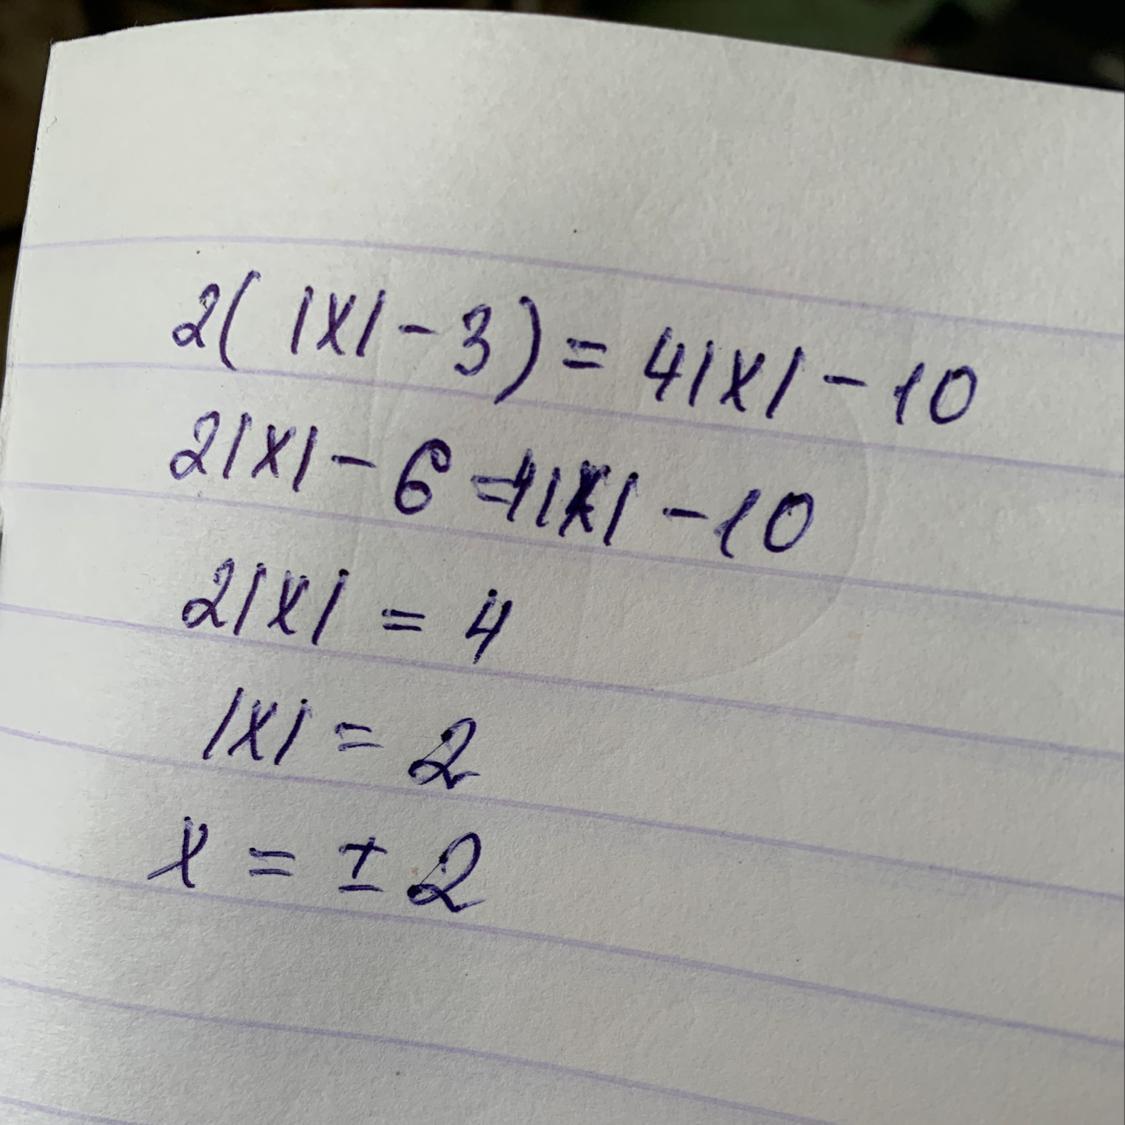 2( |x| - 3 ) = 4|x| - 10
2|x| - 6 = 4|x| - 10
2|x| = 4
|x| = 2
x = ± 2